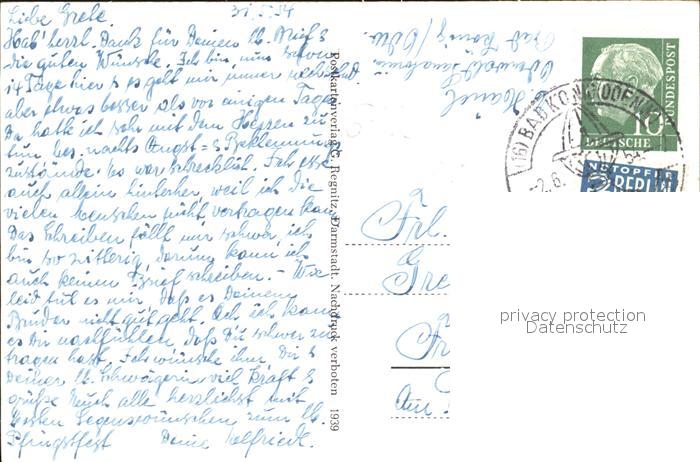 31.5.54
Liebe Grete.
Hab' herzl. Dank für Deinen lb. Brief &
die guten Wünsche. Ich bin nun schon
14 Tage hier & es geht mir immer
aber etwas besser als vor einigen Tagen
Da hatte ich sehr mit dem Herzen zu
tun bes. nachts Angst = & Beklemmungs
zustände. es war schrecklich. Ich esse
auch allein hinterher weil ich die
vielen Menschen nicht vertragen kann
Das Schreiben fällt mir schwer, ich
bin so zitterig, darum kann ich
auch keinen Brief schreiben. - Wie
leid tut es mir, daß es Deinem
Bruder nicht gut geht. Ach ich kann
es Dir nachfühlen, daß Du schwer zu
tragen hast. Ich wünsche ihm Dir &
Deiner lb. Schwägerin viel Kraft &
grüße Euch alle herzlichst mit
besten Segenswünschen zum lb.
Pfingstfest Deine
Postkartenverlag G. Regnitz, Darmstadt. Nachdruck verboten 1939
Bad König / Odw.
10
DEUTSCHE
BUNDESPOST
(16) BAD KÖNIG (ODENW)
-2.6. 54
NOTOPFER
BERLIN
Frl.
Gre
privacy protection
Datenschutz